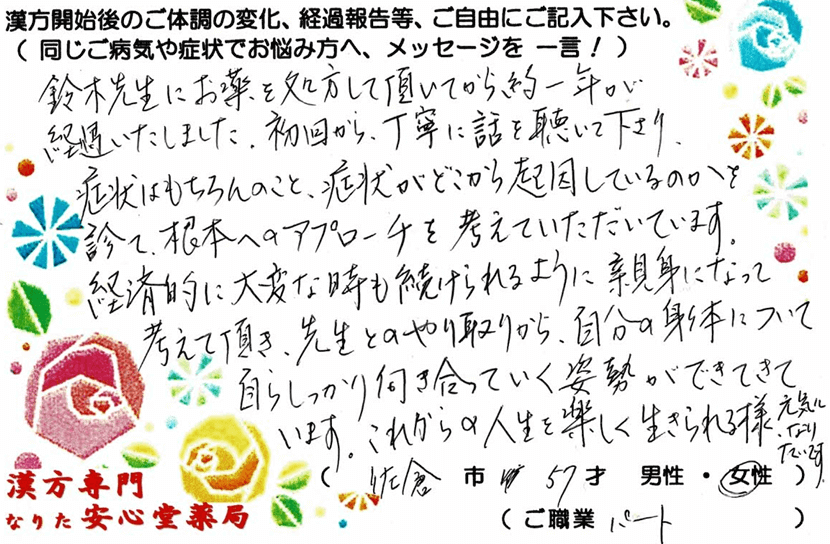 漢方開始後のご体調の変化、経過報告等、ご自由にご記入下さい。
( 同じご病気や症状でお悩み方へ、メッセージを 一言！ )
鈴木先生にお薬を処方して頂いてから約一年が
経過いたしました。初回から、丁寧に話を聴いて下さり、
症状はもちろんのこと、症状がどこから起因しているのかを
診て、根本へのアプローチを考えていただいています。
経済的に大変な時も続けられるように親身になって
考えて頂き、先生とのやり取りから、自分の身体について
自らしっかり向き合っていく姿勢ができてきて
います。これからの人生を楽しく生きられる様 元気に
なり
たいです。
( 佐倉 市 57才 男性・女性 )
漢方専門
なりた 安心堂薬局
( ご職業 パート )